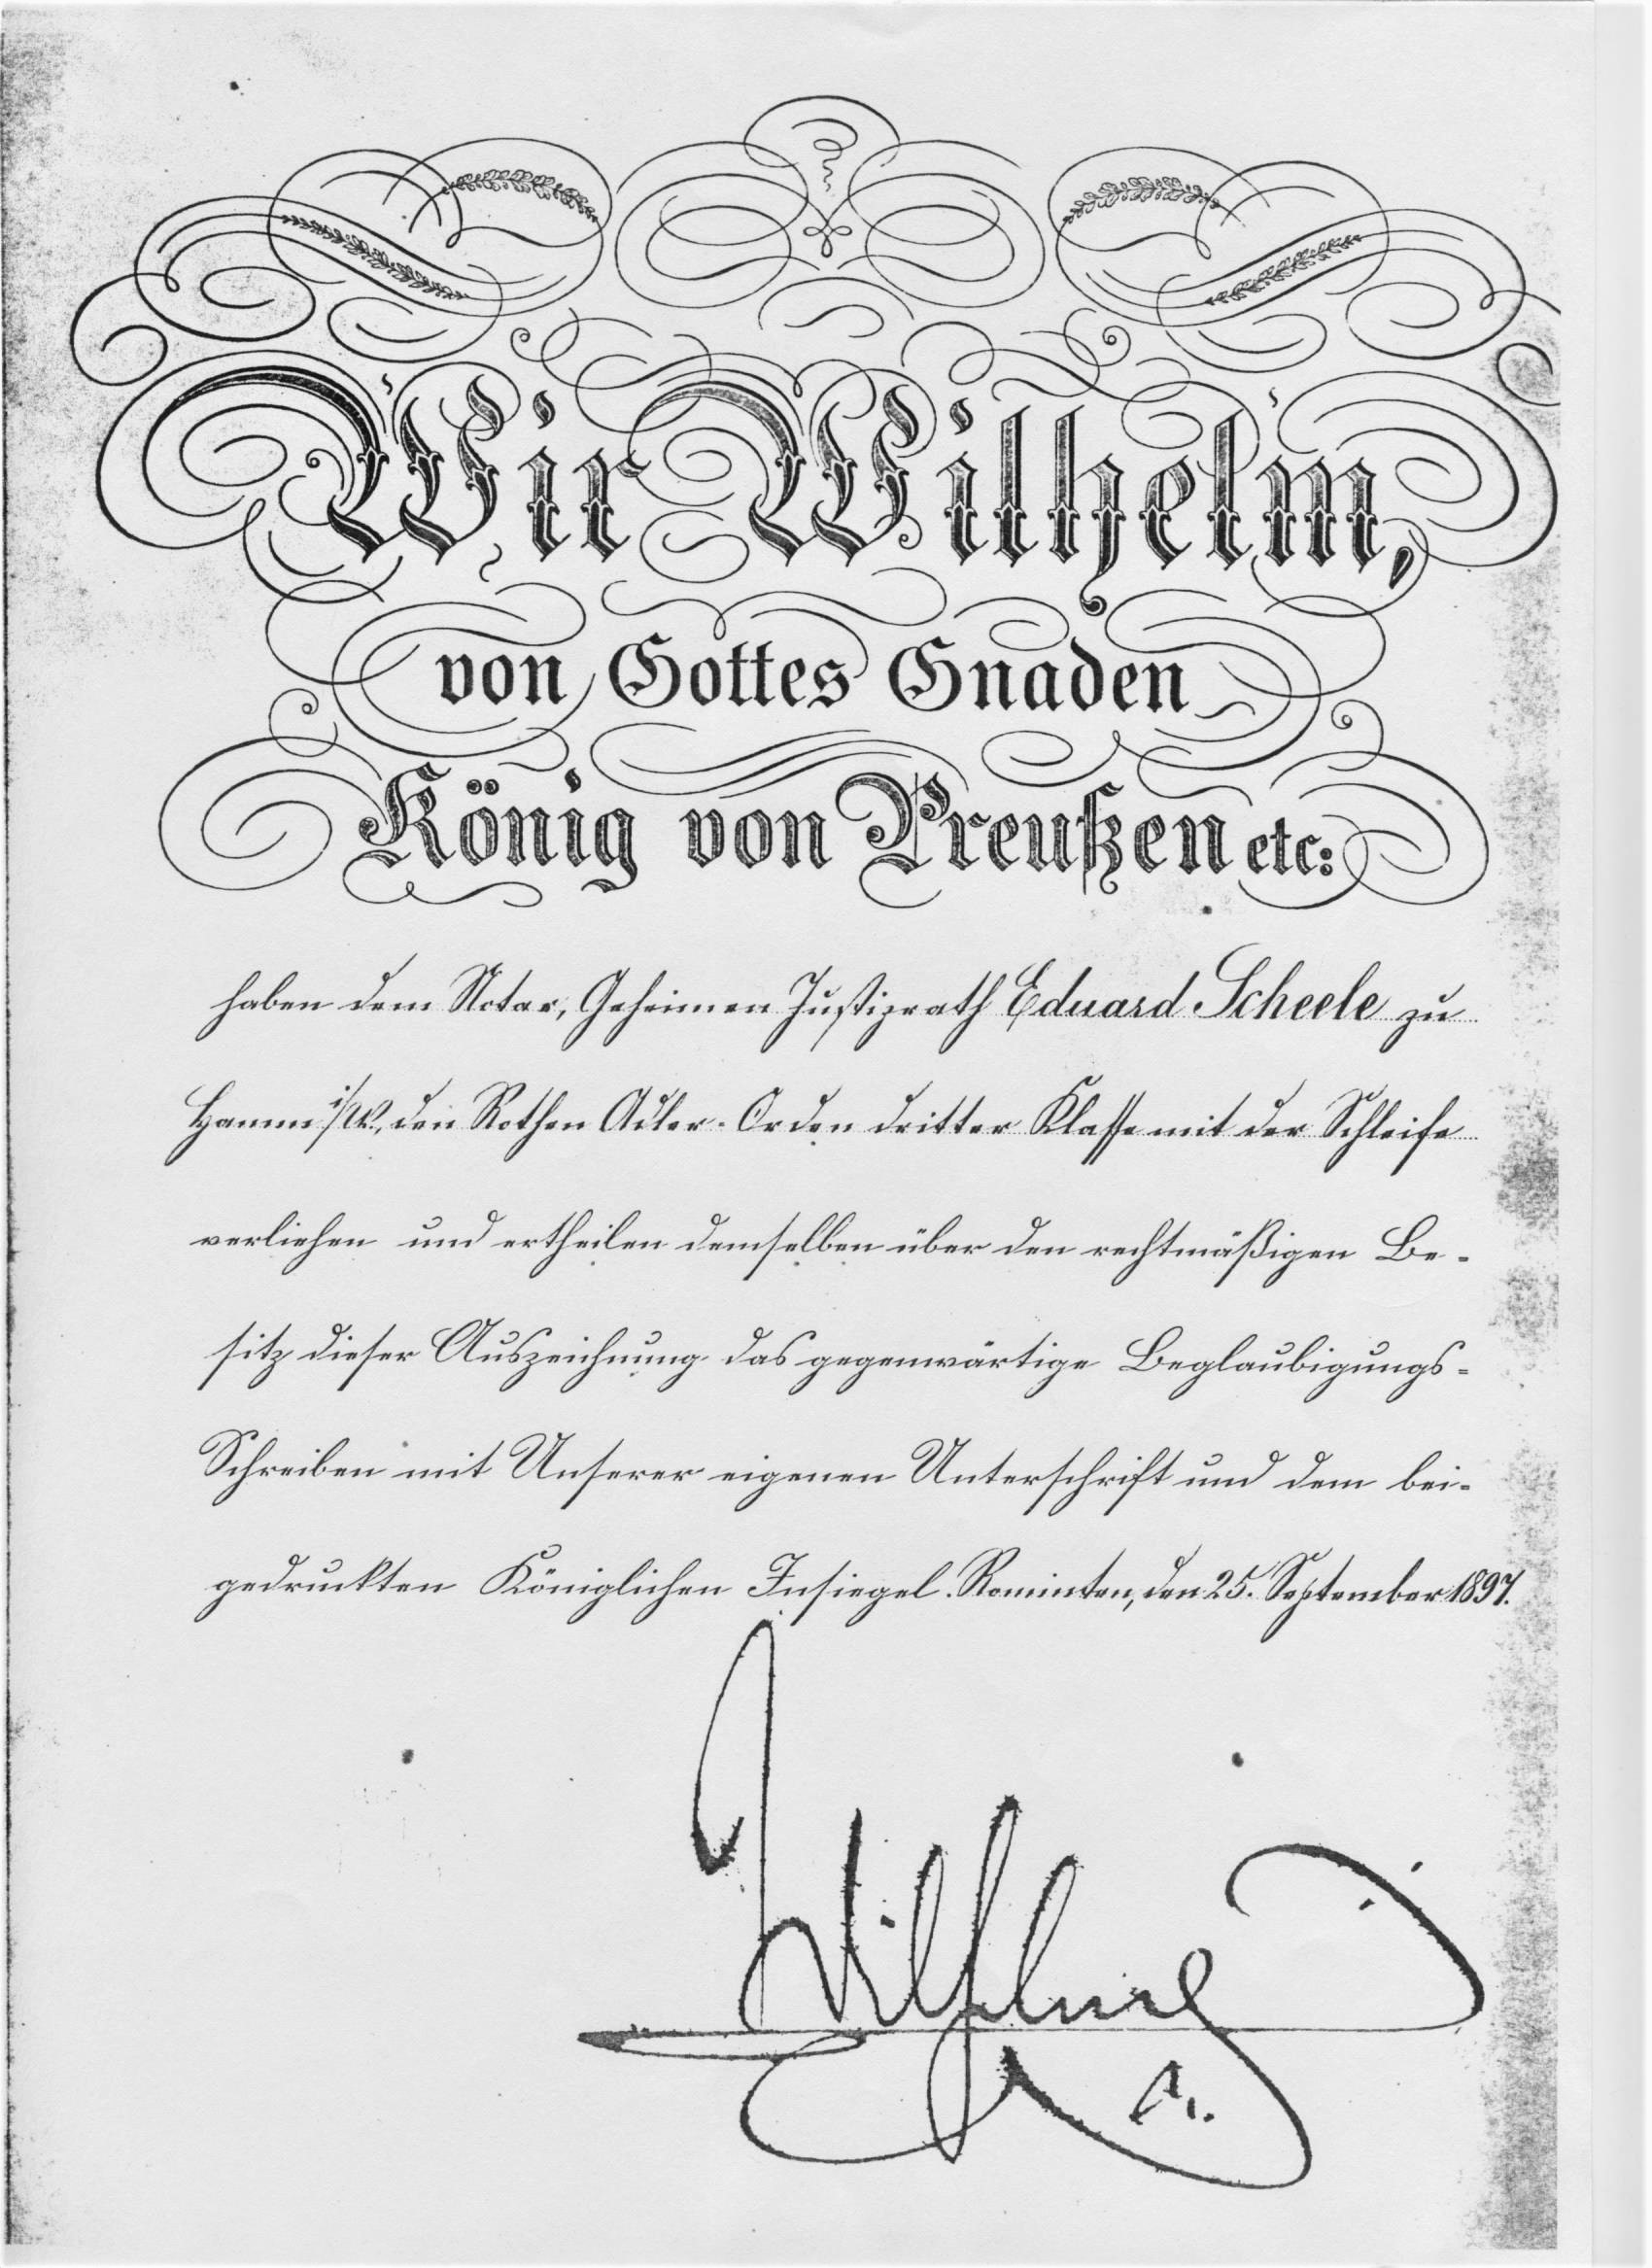 Wir Wilhelm,
von Gottes Gnaden
König von Preußen etc:
haben dem Notar, Geheimen Justizrath Eduard Scheele zu
Hamm i/W., den Rothen Adler-Orden dritter Klasse mit der Schleife
verliehen und ertheilen demselben über den rechtmäßigen Be-
sitz dieser Auszeichnung das gegenwärtige Beglaubigungs-
Schreiben mit Unserer eigenen Unterschrift und dem bei-
gedruckten Königlichen Insiegel. Rominten, den 25. September 1897.
Wilhelm
R.